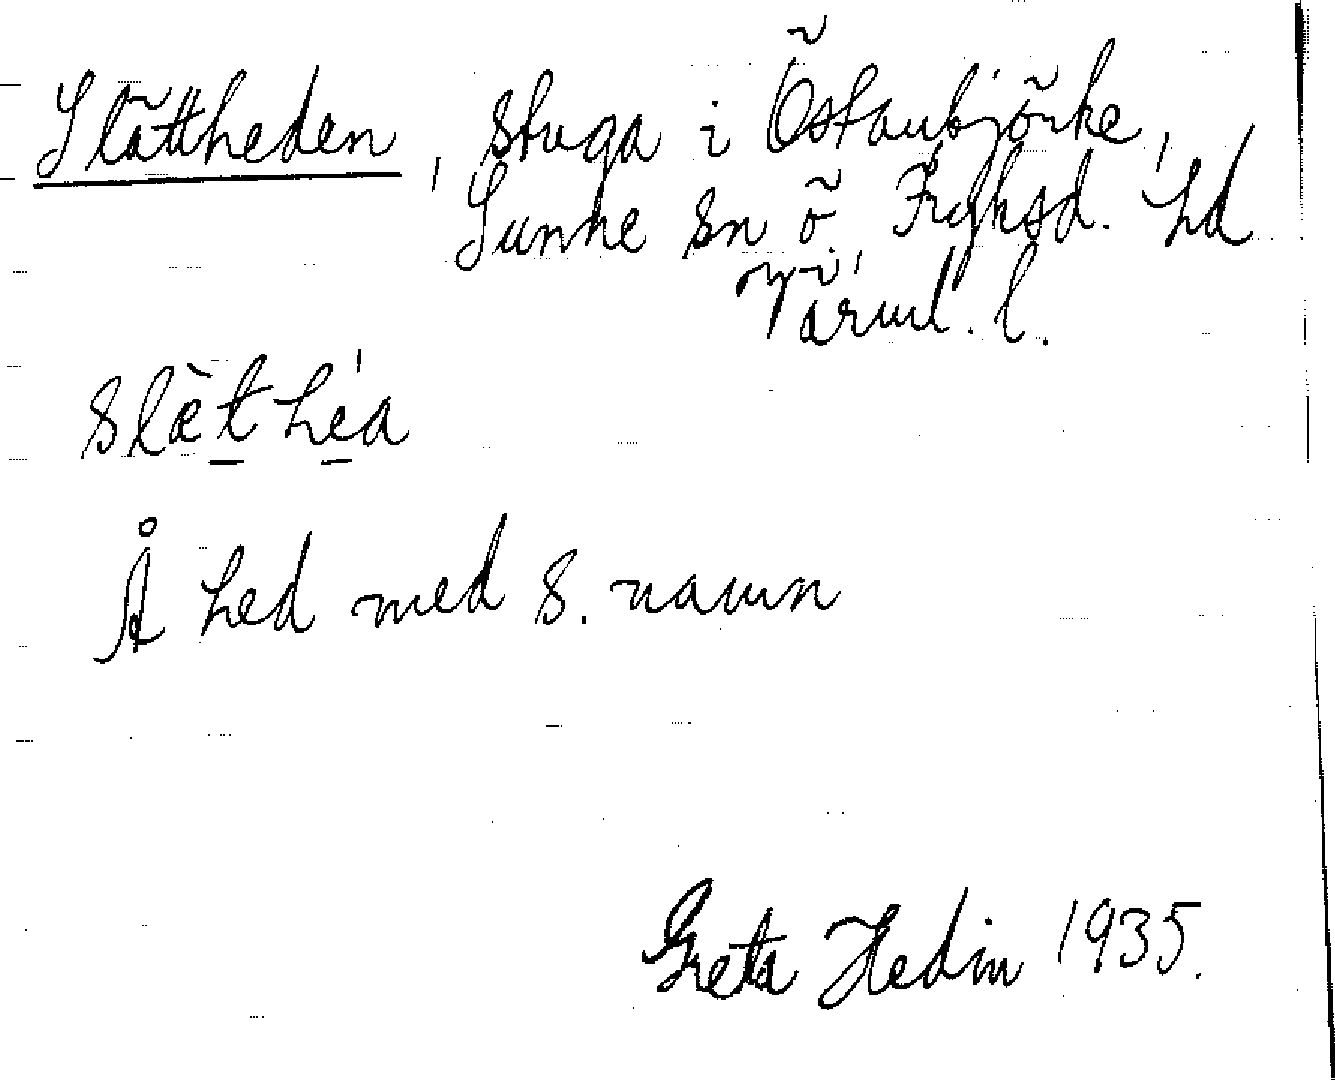 Slättheden, stuga i Östanbjörke,
Sunne sn Ö. Fryksd. hd
Värml. l.
slæ̀t he̍a
Å hed med s. namn
Greta Hedin 1935.